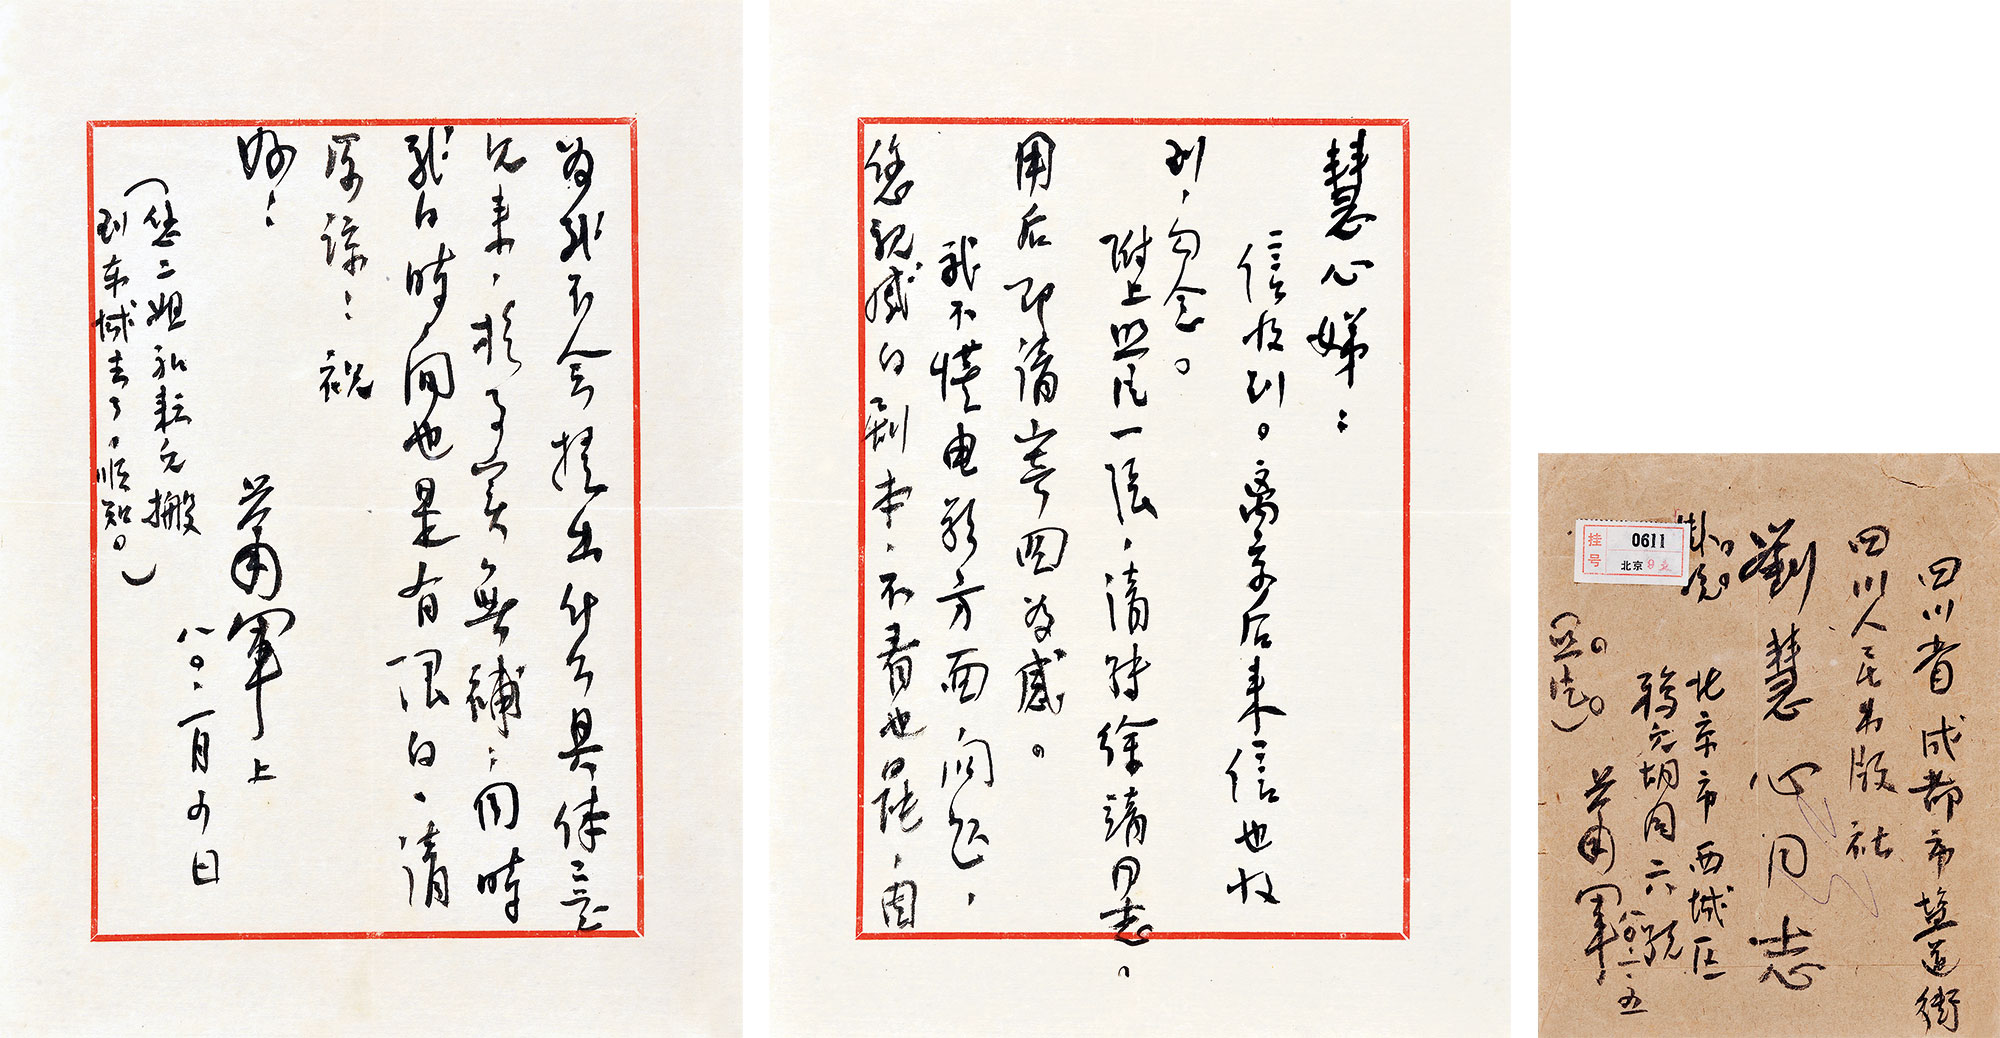 慧心娣：
信收到。离京后来信也收
到，勿念。
附上照片一张，请转徐靖同志。
用后即请寄回为感。
我不懂电影方面问题，
您视感的剧本，不看也罢，因
为我不会提出什么具体意
见来，于事实无补；同时
我的时间也是有限的，请
原谅：祝
好：
萧军上
八〇，二月四日
（您二姐和耘兄搬
到东城去了，顺知。）
四川省成都市盐道街
四川人民出版社
劉慧心同志
掛号
挂号
0611
北京9支
北京市西城区
鸦儿胡同六号
萧军
八〇.二.五
（照片）